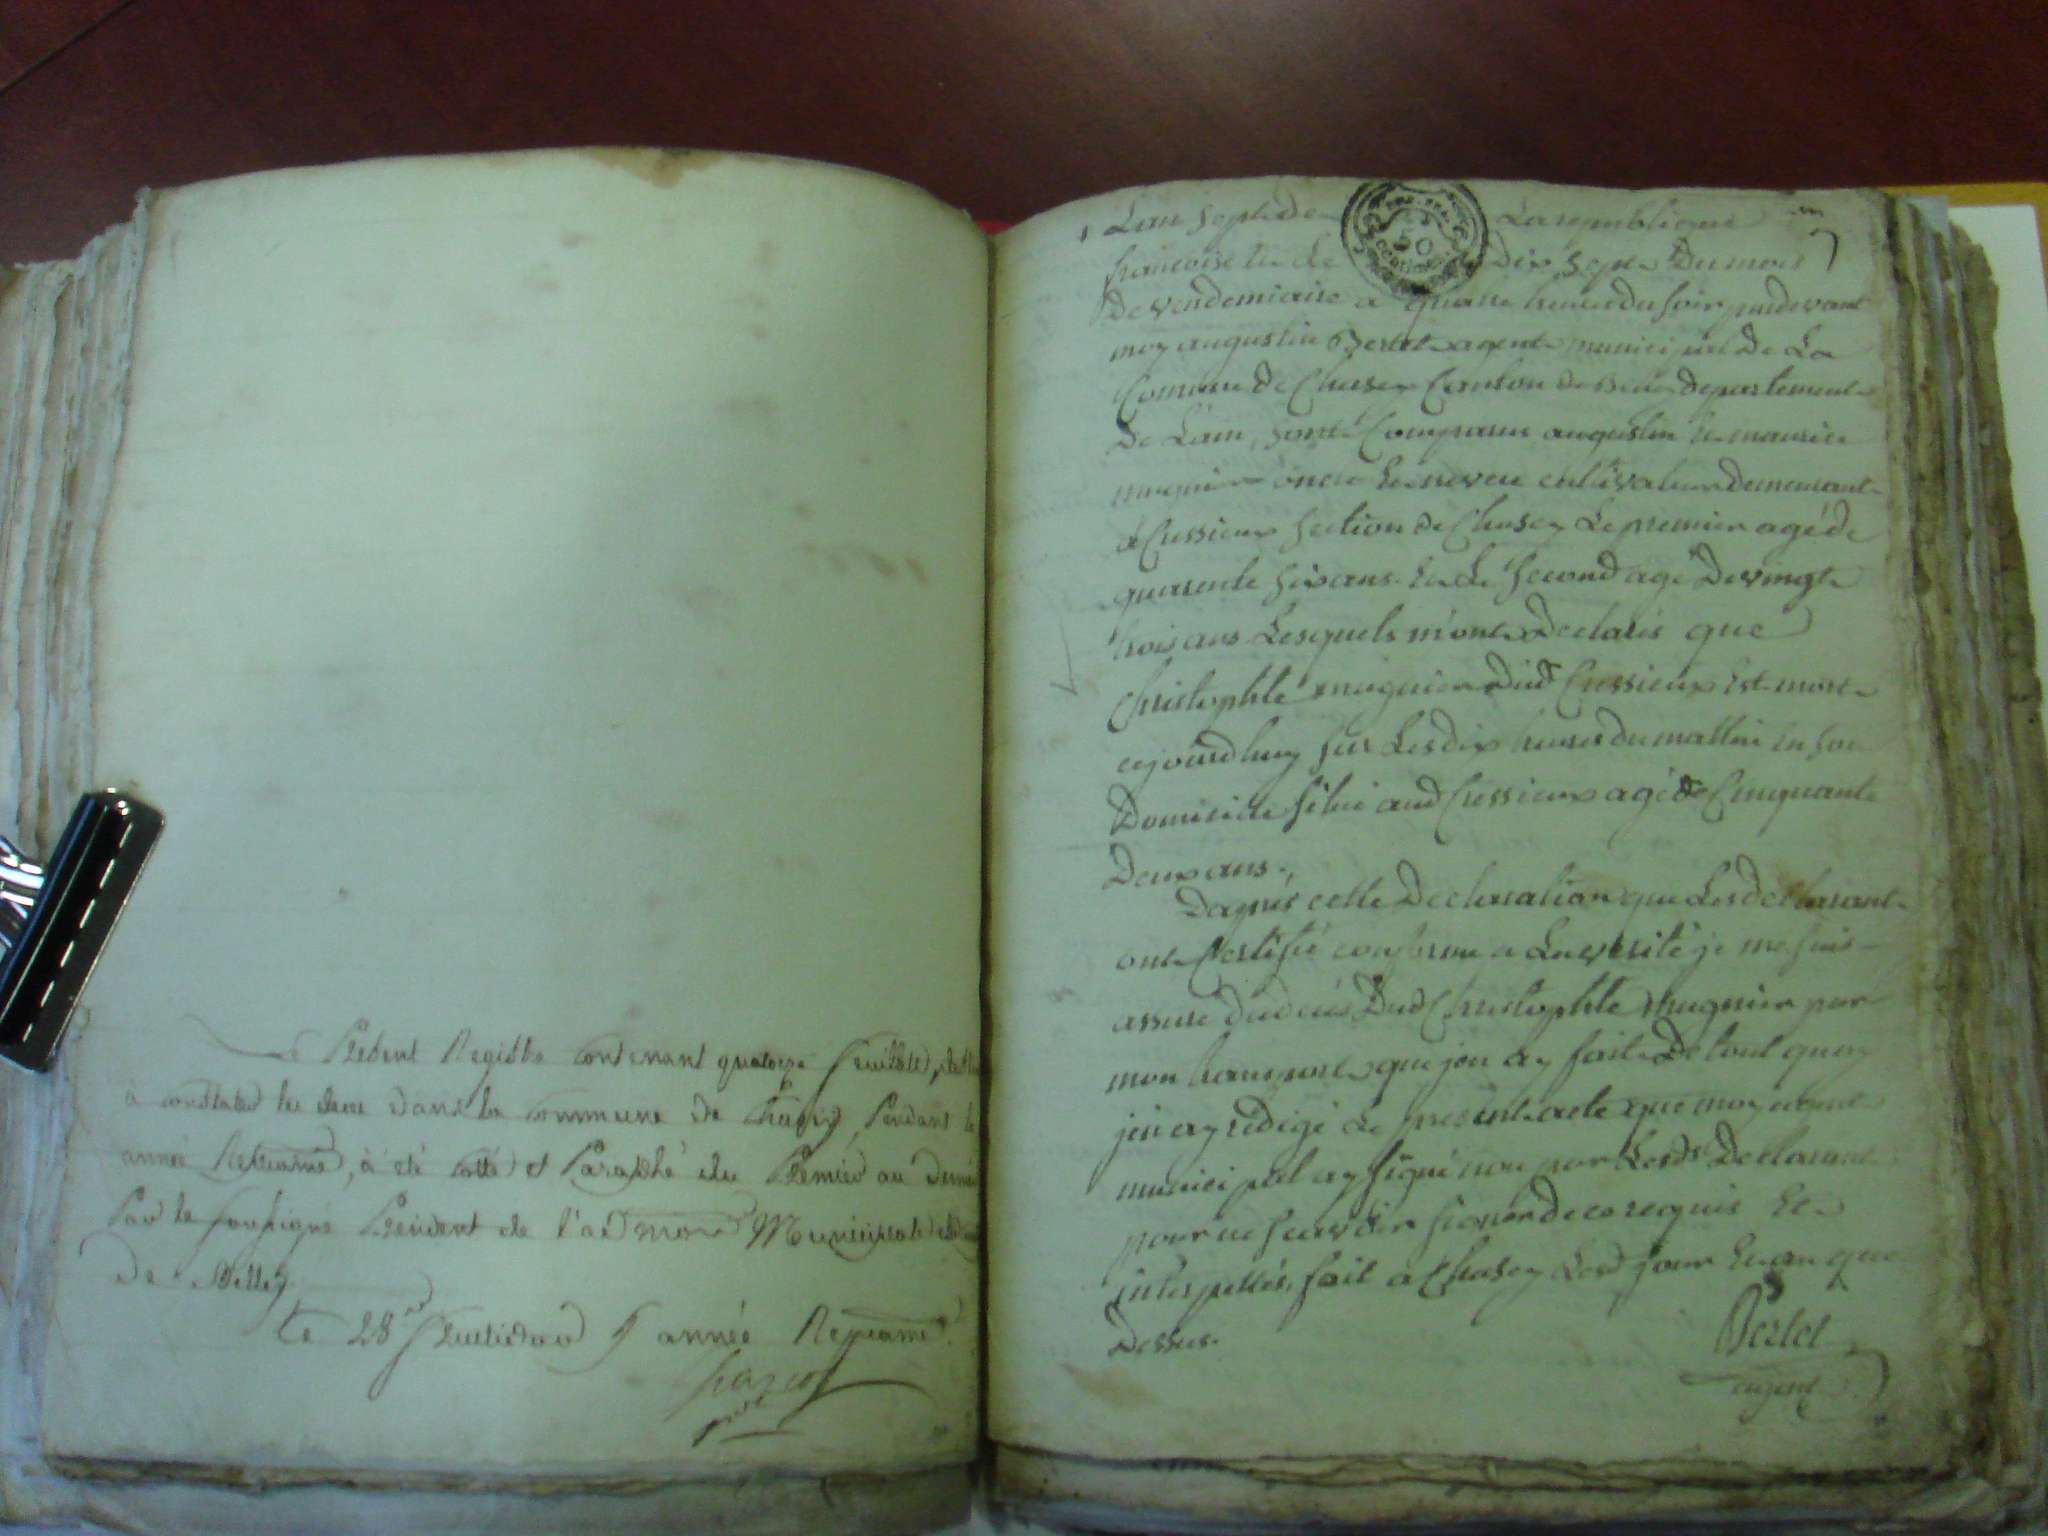 Present Registre Contenant quatorze feuillets,
à constater les deces dans la Commune de Chasey, Pendant la
année Septieme, à été Cotté et Paraphé du Premier au Dernier
Par le soussigné President de l'admon Municipale
De Belley
Le 28 fructidor 6 année Repucaine
L'an sept de La republique
francoise et le Dix sept Du mois
De vendemiaire a quatre heures du soir pardevant
moy augustin Bertet agent municipal De La
Comune De Chasey Canton de Belley departement
De Lain, sont Comparus augustin et maurice
mugnier oncle et neveu cultivateur demeurant
a Cressieux section de Chasey Le premier agé de
quarente six ans et Le second agé De vingt
trois ans Lesquels m'ont Declarés que
Christophle mugnier dud Cressieux est mort
ajourdhuy sur Les dix heures du mattin en son
Domicille situé aud Cressieux agé de Cinquante
Deux ans.,
Dapres cette Declaration que Les declarant
ont Certifié conforme a La verité je me suis
assuré du deces Dud Christophle Mugnier par
mon transport que jen ay fait De tout quoy
jen ay redigé Le present acte que moy agent
municipal ay signé non par Lesds Declarant
pour ne scavoir signer de ce requis Et
interpellés, fait a Chasey Led jour et an que
Dessus.
Bertet
agent
50
centimes